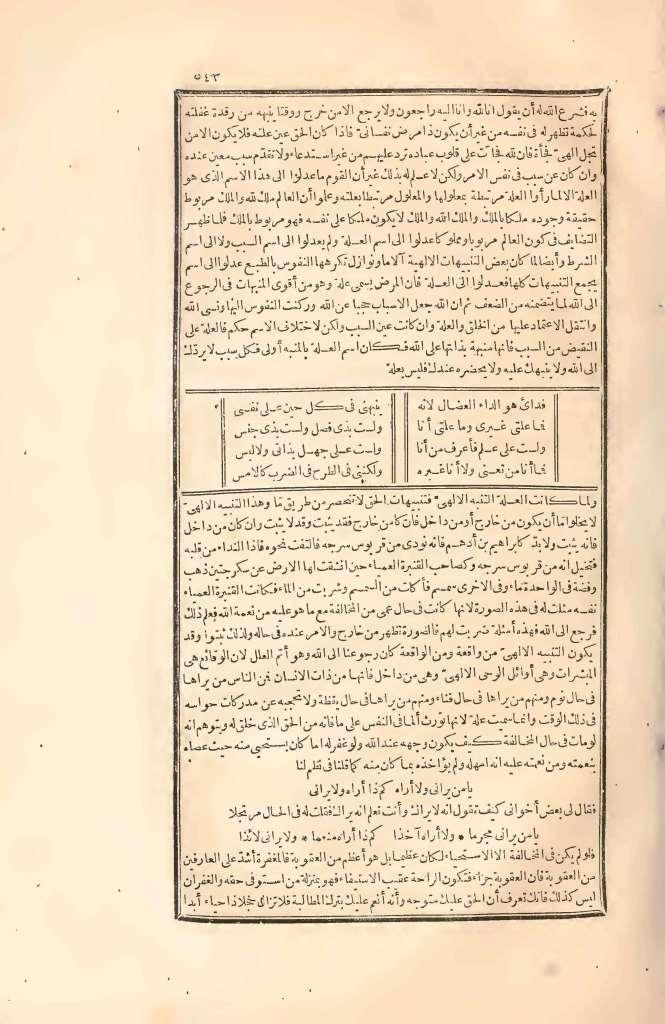 ٥٤٣
به فشرع الله له أن يقول انا لله وانا اليه راجعون ولا يرجع الا من خرج ووقتا ينبهه من رقدة غفلته
لحكمة تظهر له فى نفسه من غير أن يكون ذا مرض نفسانى فاذا كان الحق عين علته فلا يكون الا من
تجل الهى فجأة فان لله فجآت على قلوب عباده ترد عليهم من غير استدعاء ولا تقدم سبب معين عنده
وان كان عن سبب فى نفس الامر ولكن لا علم له بذلك غير أن القوم ما عدلوا الى هذا الاسم الذى هو
العلة الا لما رأوا العلة مرتبطة بمعلولها والمعلول مرتبطا بعلته وعلموا أن العالم ملك لله والملك مربوط
حقيقة وجوده ملكا بالملك والملك الله والملك لا يكون ملكا على نفسه فهو مربوط بالملك فلما ظهر
التضايف فى كون العالم مربوبا ومملوكا عدلوا الى اسم العلة ولم يعدلوا الى اسم السبب ولا الى اسم
الشرط وأيضا لما كان بعض التنبيهات الالهية آلاما ونوازل تكرهها النفوس بالطبع عدلوا الى اسم
يجمع التنبيهات كلها فعدلوا الى العلة فان المرض يسمى علة وهو من أقوى المنبهات فى الرجوع
الى الله لما يتضمنه من الضعف ثم ان الله جعل الاسباب حجبا عن الله وركنت النفوس اليها ونسى الله
وانتقل الاعتماد عليها من الخلق والعلة وان كانت عين السبب ولكن لاختلاف الاسم حكم فالعلة على
النقيض من السبب فانها منبهة بذاتها على الله فكان اسم العلة بالمنبه أولى فكل سبب لا يردك
الى الله ولا ينبهك عليه ولا يحضره عندك فليس بعلة
فدائى هو الداء العضال لانه ينبهنى فى كل حين على نفسى
فما علتى غيرى وما علتى أنا ولست بذى فصل ولست بذى جنس
ولست على علم فأعرف من أنا ولست على جهل بذاتى ولا لبس
فما أنا من تعنى ولا أنا غيره ولكننى فى الطرح فى الضرب كالامس
ولما كانت العلة التنبيه الالهى فتنبيهات الحق لا تنحصر من طريق ما وهذا التنبيه الالهى
لا يخلو اما أن يكون من خارج أو من داخل فان كان من خارج فقد يثبت وقد لا يثبت وان كان من داخل
فانه يثبت ولا بد كابراهيم بن أدهم فانه نودى من قربوس سرجه فالتفت نحوه فاذا النداء من قلبه
فتخيل انه من قربوس سرجه وكصاحب القنبرة العمياء حين انشقت لها الارض عن سكرجتين ذهب
وفضة فى الواحدة ماء وفى الاخرى سمسم فأكلت من السمسم وشربت من الماء فكانت القنبرة العمياء
نفسه مثلت له فى هذه الصورة لانها كانت فى حال عمى من المخالفة مع ما هو عليه من نعمة الله فعلم ذلك
فرجع الى الله فهذه أمثلة ضربت لهم فالصورة تظهر من خارج والامر عنده فى حاله ولذلك ثبتوا وقد
يكون التنبيه الالهى من واقعة ومن الواقعة كان رجوعنا الى الله وهو أتم العلل لان الوقائع هى
المبشرات وهى أوائل الوحى الالهى وهى من داخل فانها من ذات الانسان فمن الناس من يراها
فى حال نوم ومنهم من يراها فى حال فناء ومنهم من يراها فى حال يقظة ولا تحجبه عن مدركات حواسه
فى ذلك الوقت وانما سميت علة لانها تورث ألما فى النفس على ما فاته من الحق الذى خلق له ويتوهم انه
لو مات فى حال المخالفة كيف يكون وجهه عند الله ولو غفر له اما كان يستحيى منه حيث عصاه
بنعمته ومن نعمته عليه انه امهله ولم يؤاخذه بما كان منه كما قلنا فى نظم لنا
يا من يرانى ولا أراه كم ذا أراه ولا يرانى
فقال لى بعض أخوانى كيف تقول انه لا يراك وأنت تعلم انه يراك فقلت له فى الحال مرتجلا
يا من يرانى مجرما * ولا أراه آخذا كم ذا أراه منعما * ولا يرانى لائذا
فلو لم يكن فى المخالفة الا الاستحياء لكان عظيما بل هو أعظم من العقوبة فالمغفرة أشد على العارفين
من العقوبة فان العقوبة جزاء فتكون الراحة عقيب الاستيفاء فهو بمنزلة من استوفى حقه والغفران
ليس كذلك فانك تعرف أن الحق عليك متوجه وأنه أنعم عليك بترك المطالبة فلا تزال خجلا ذا حياء أبدا